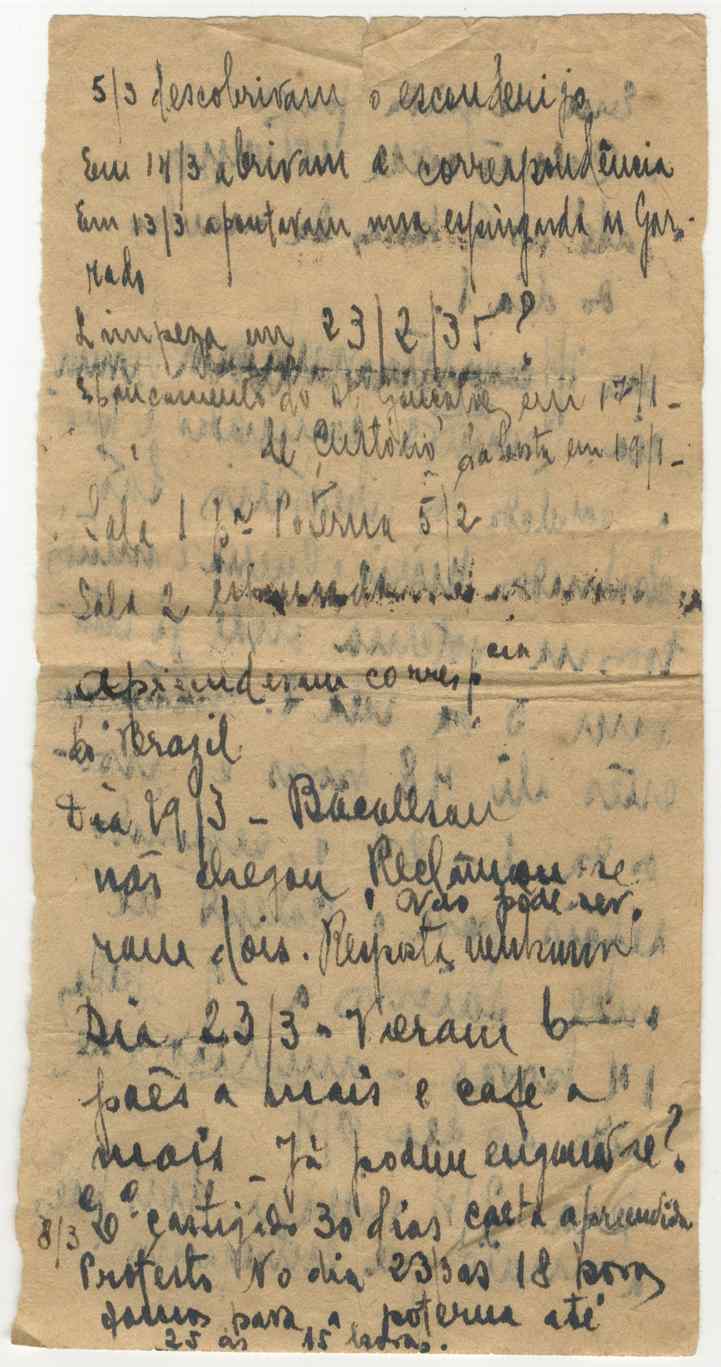 5/3 descobriram o esconderijo
Em 14/3 abriram a correspondência
Em 13/3 apontavam uma espingarda ao Gar-
rado
Limpeza em 23/2/35?
Espancamento do em 17/1 -
de Custódio da Costa em 19/1 -
Sala 1 pª Poterna 5/2
Sala 2
Aprienderam correspcia
Brazil
Dia 19/3 - Bacalhau
não chegou Reclamou-se
Não póde ser.
ram dois. Resposta nenhuma
Dia 23/3 - Vieram 6
paês a mais e café a
mais - Já podem enganar-se?
8/3 castigado 30 dias carta apreendida
Protesto No dia 23/3 ás 18 horas
fomos para a poterna até
25 ás 15 horas.